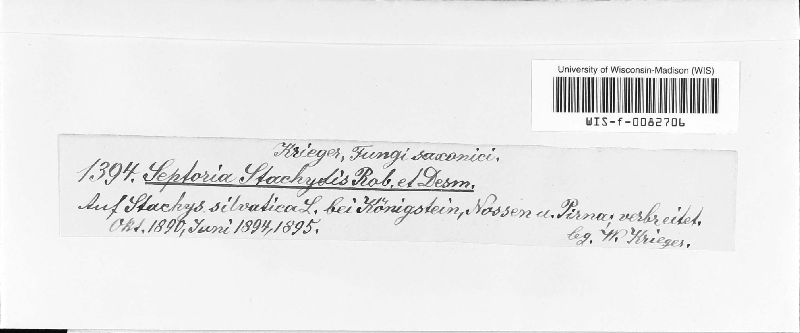 University of Wisconsin-Madison (WIS)
WIS-f-0082706
Krieger, Fungi saxonici.
1394. Septoria Stachydis Rob. et Desm.
Auf Stachys silvatica L. bei Königstein, Nossen u. Pirna; verbreitet.
Okt. 1890, Juni 1894, 1895.
leg. W. Krieger.